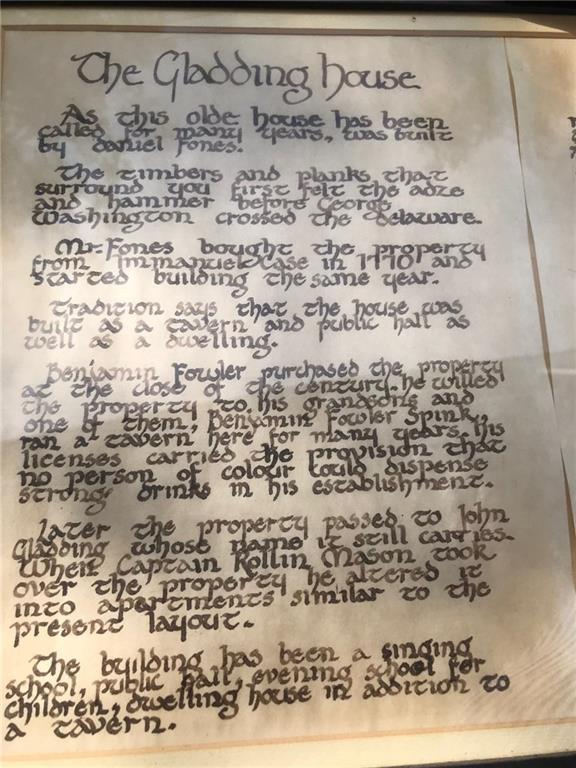 The Gladding house
As this olde house has been
called for many years, was built
by Daniel Fones.
The timbers and planks that
surround you first felt the adze
and hammer before George
Washington crossed the Delaware.
Mr. Fones bought the property
from Immanuel Case in 1770 and
started building the same year.
Tradition says that the house was
built as a tavern and public hall as
well as a dwelling.
Benjamin Fowler purchased the property
at the close of the century. he willed
the property to his grandsons and
one of them, Benjamin Fowler Spink,
ran a tavern here for many years. his
licenses carried the provision that
no person of colour could dispense
strong drinks in his establishment.
Later the property passed to John
Gladding whose name it still carries.
When Captain Rollin Mason took
over the property he altered it
into apartments similar to the
present layout.
The building has been a singing
school, public hall, evening school for
children, dwelling house in addition to
a tavern.